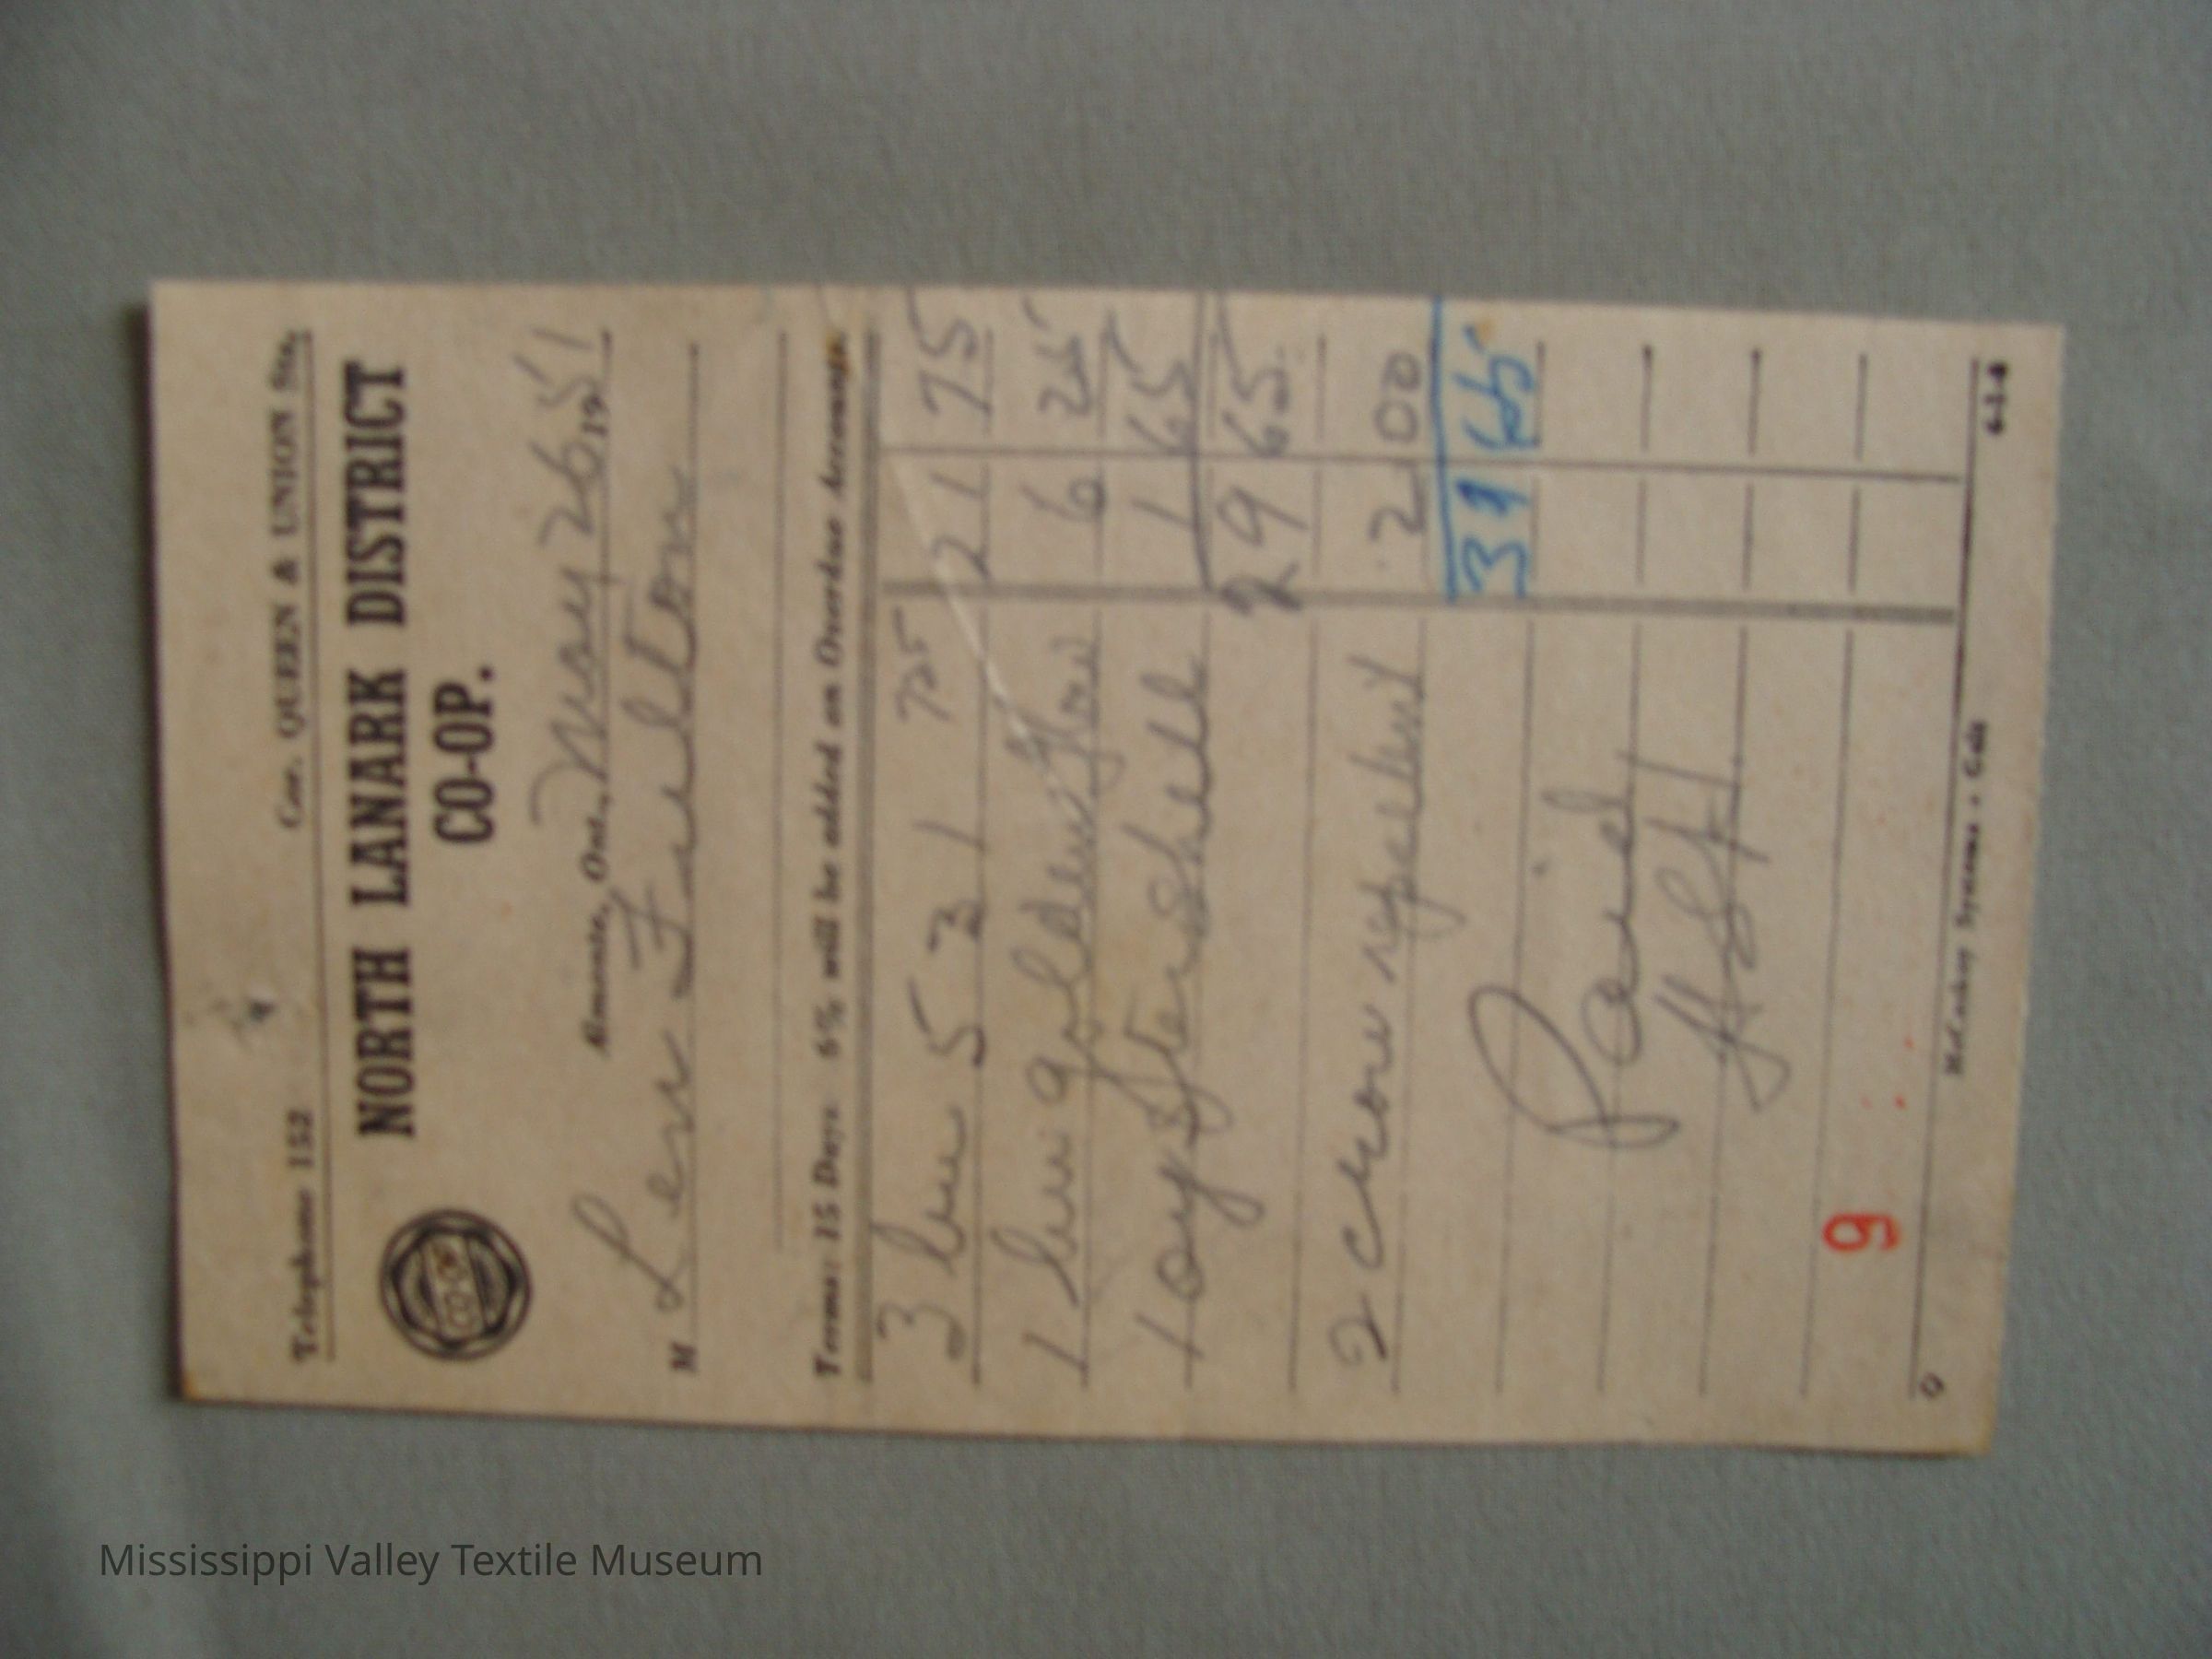 Telephone 152 Cor. QUEEN & UNION Sts.
NORTH LANARK DISTRICT
CO-OP.
CO-OP
Almonte, Ont., May 26 1951
M Len Fulton
Terms: 15 Days 6% will be added on Overdue Accounts
3 bu 531 725 21 75
1 bu golden glow 6 25
1 oystershell 1 65
29 65
2 crow repellent 2 00
31 65
Paid
9
Mississippi Valley Textile Museum